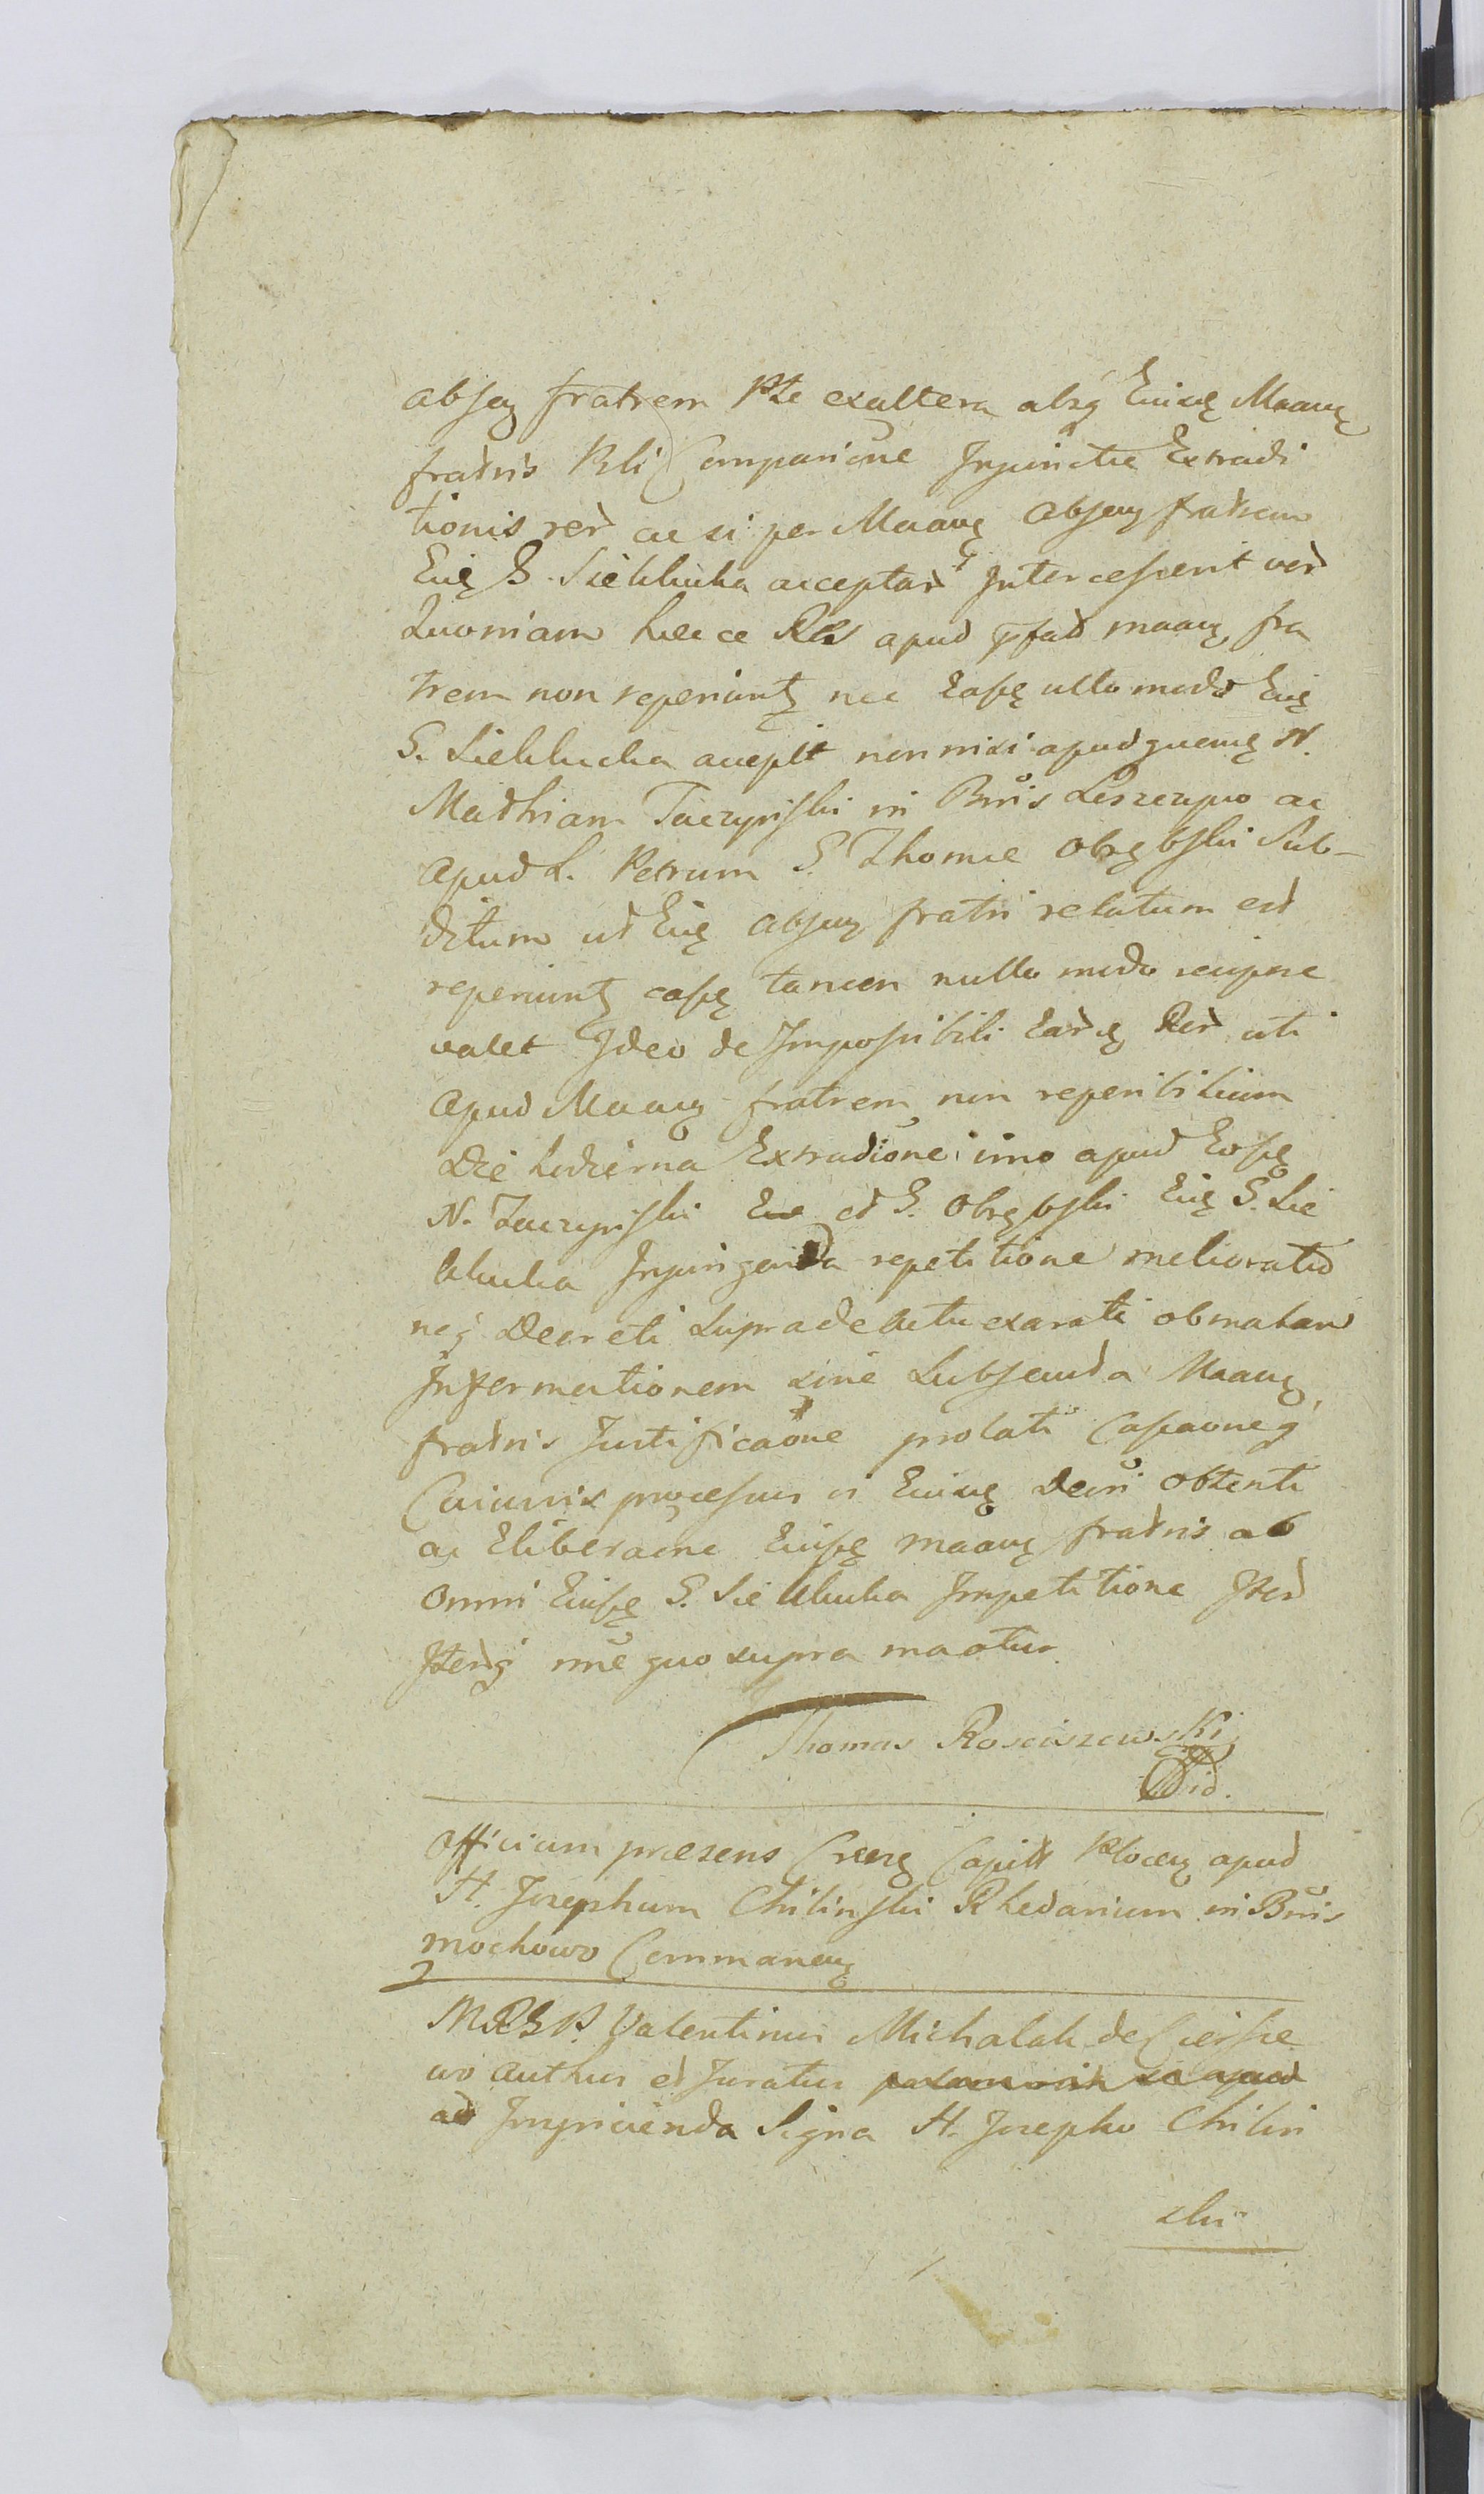 absen fratrem Pte exaltera absq Eiusq Maanę
fratris Rli Comparione Injunctæ Extradi
tionis rer ac si per Maanę absen fratrem
Eią S. Sieklucka acceptar Intercesserit ver
Quoniam hæce Res apud pfat maanę fra
trem non reperiuntę nec Easpę ullo modo Eią
S. Sieklucka accepit non nisi apud quemę N.
Mathiam Taczynski in Bnis Leszczyno ac
apud L. Petrum S. Thomæ Obrębski Sub-
ditum ut Eią absen fratri relatum est
reperiuntę easpę tamen nullo modo recipere
valet Ideo de Impossibili Earę Rer uti
apud Maanę fratrem non reperibilium
Die hodierna Extradione imo apud Eospę
N. Taczynski et S. Obrębski Eią S. Sie
klucka Injungenda repetitione melioratio
neq Decreti supra de actu exarati ob malam
Informationem sine Subsecuta Maanę
fratris Justificaone prolati Cassaoneq
Cuiusvis processus vi Eiusę Decri obtenti
ac Eliberaone Eiuspę maanę fratris ab
omni Eiuspę S. Sieklucka Impetitione Iter
Iterq mne quo supra maatur
Thomas Rosciszewski
id.
Officium præsens Crense Capitt Plocen apud
H. Josephum Chilinski Rhedarium in Bnis
Mochowo Commanen
MRSP. Valentinus Michalak de Cierſze
wo authus et Juratus
ad Impicienda Signa H. Josepho Chilin
ski